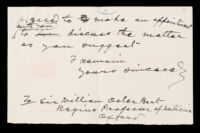 to make an appointment
with you
to discuss the matter
as you suggest
I remain
Yours sincerely
To Sir William Osler Bart
Regius Professor of Medicine
Oxford